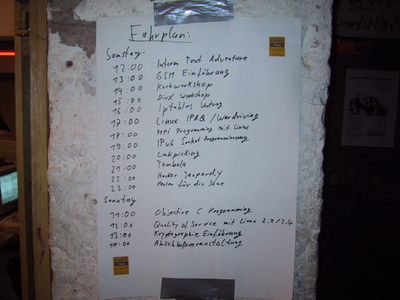 Fahrplan:
Samstag:
12:00 Interm Text Adventure
13:00 GSM Einführung
14:00 Kochworkshop
15:00 Divx Workshop
16:00 Iptables
17:00 Linux IPAQ / Wardriving
18:00 MPI Programming mit Linux
19:00 IPv6 Socket Programmierung
20:00 Lockpicking
21:00 Tombola
22:00 Hacker Jeopardy
23:00 für die Säue
Sonntag:
11:00 Objective C Programming
12:00 Quality of Service mit Linux 2.2/2.4
13:00 Kryptographie Einführung
14:00 Abschlußveranstaltung